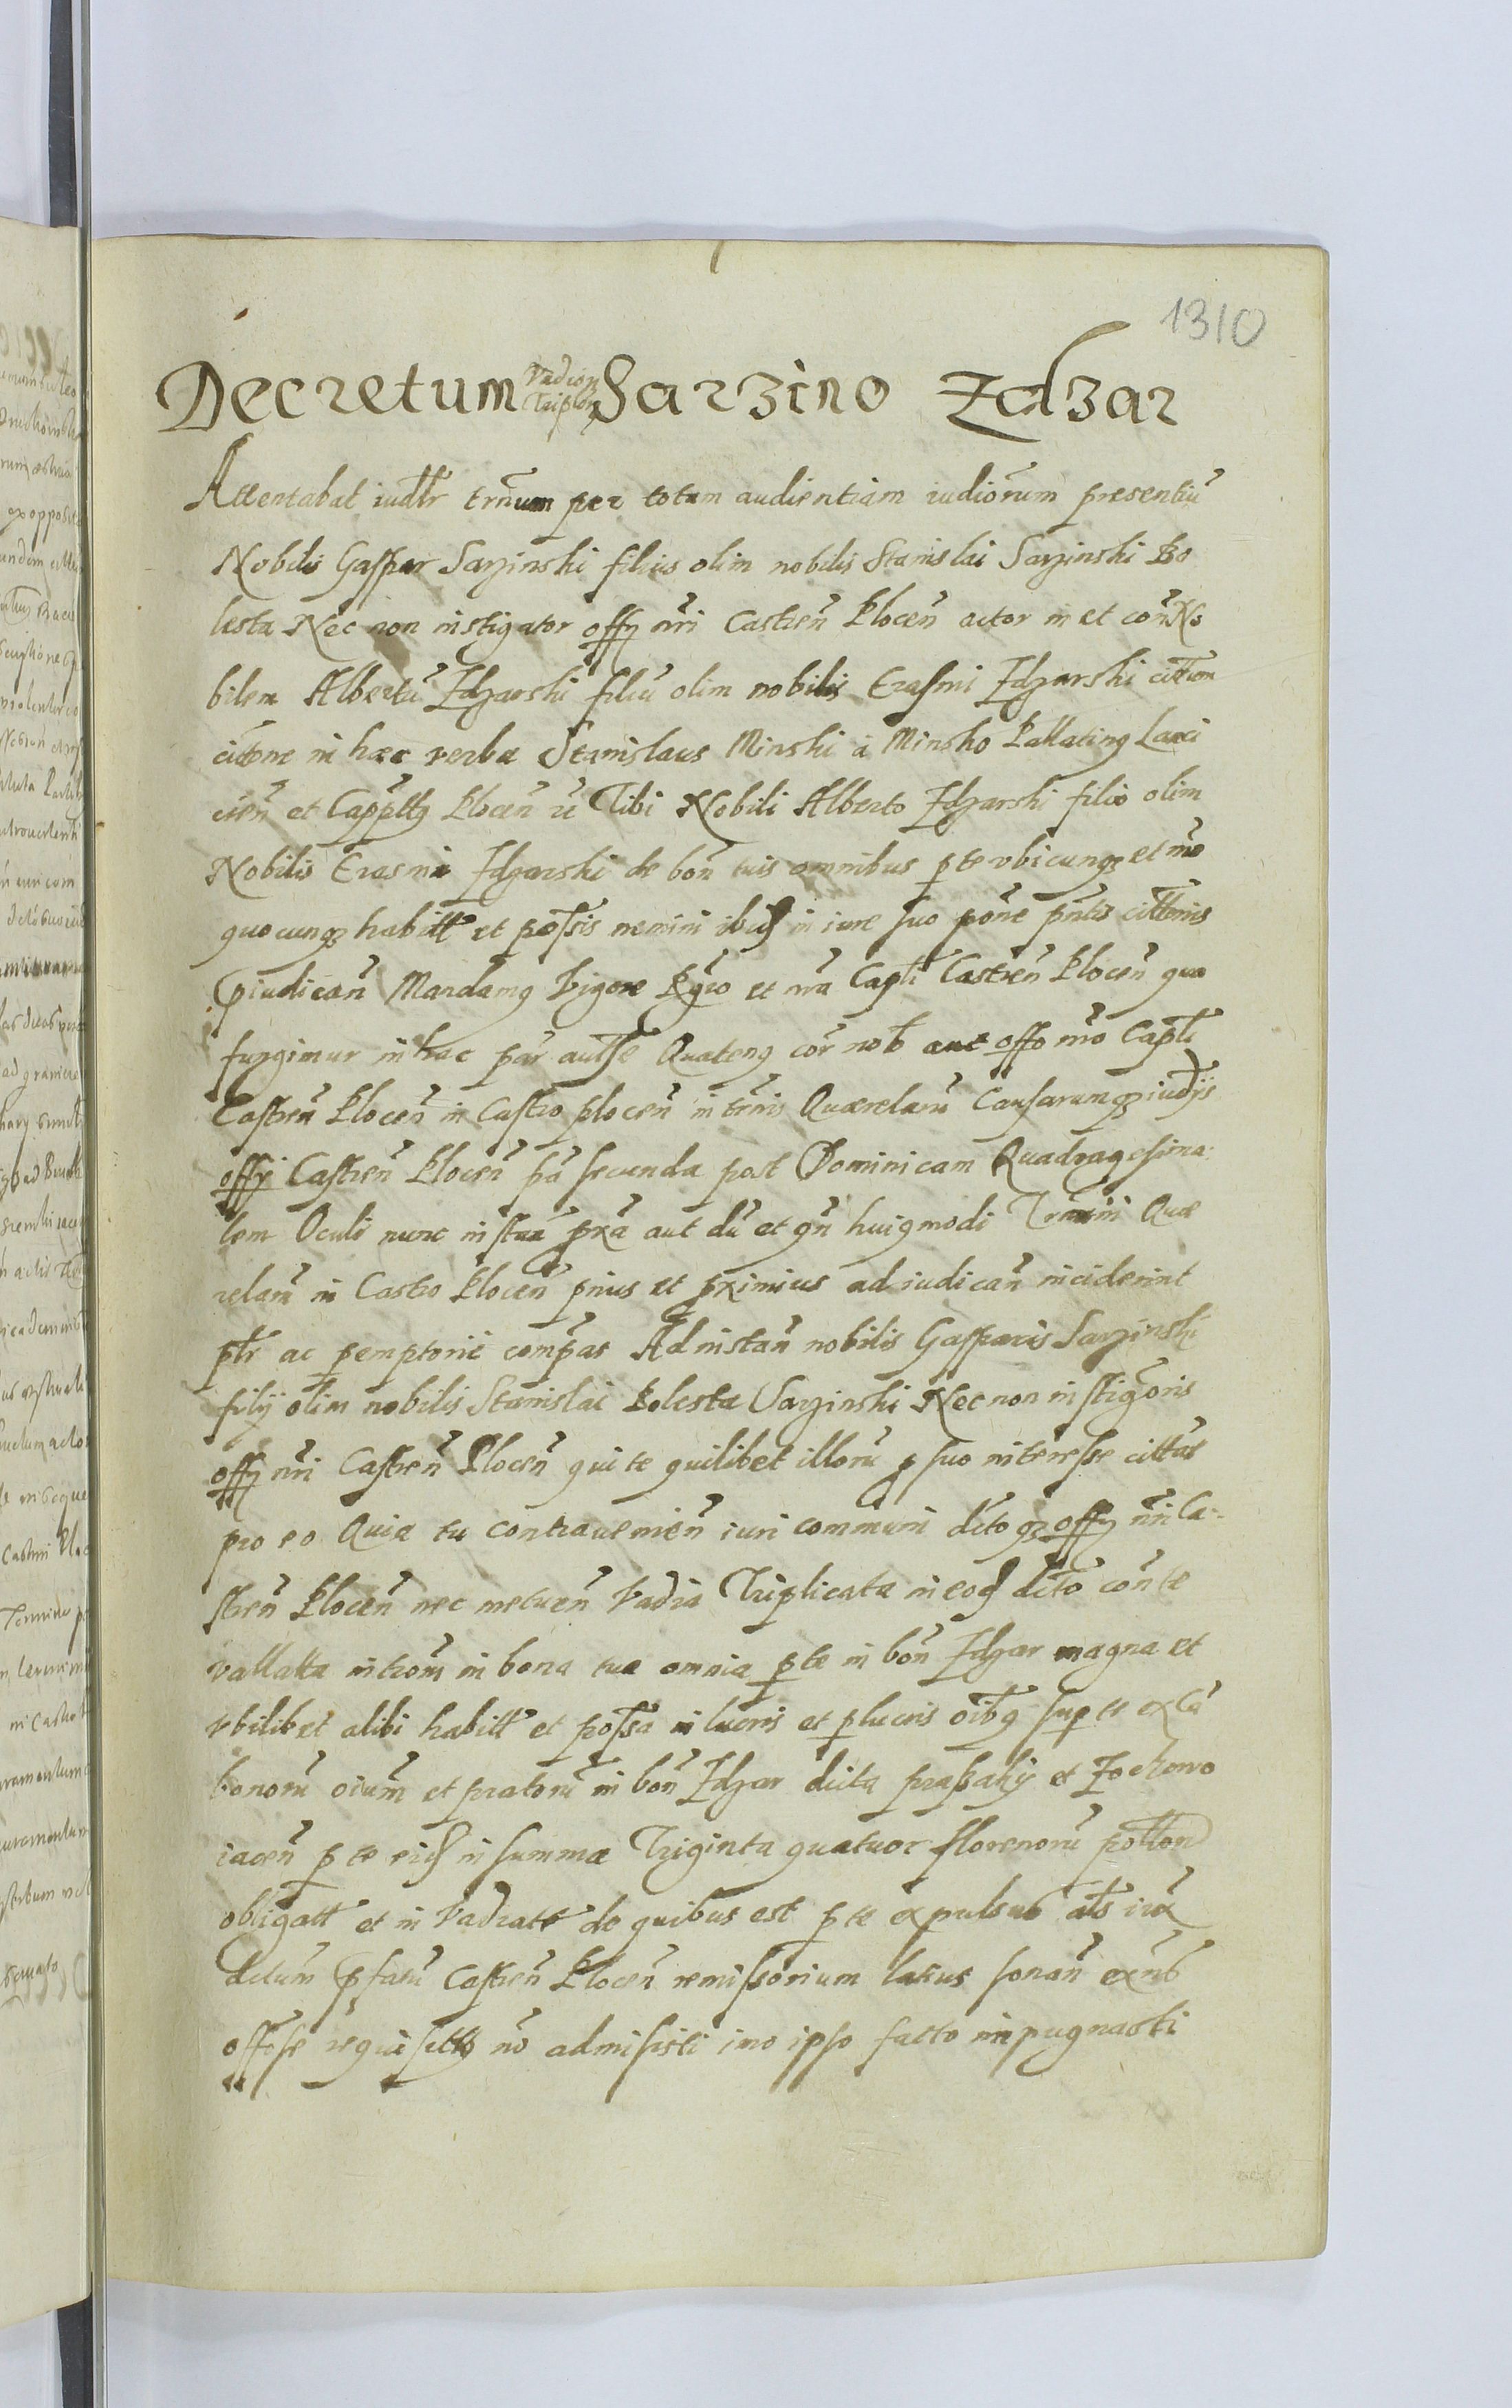 1310
Decretum Vadion Triplon Sarzino Zdzar
Attentabat iudlr trnum per totam audientiam iudiorum presentiu
Nobilis Gaspar Sarzinski filius olim nobilis Stanislai Sarzinski Bo
lesta Nec non instigator offy nri Castren Plocen actor in et con No
bilem Albertu Zdzarski filiu olim nobilis Erasmi Zdzarski cittion
cittone in haec verba Stanislaus Minski a Minsko Pallatinq Lanci
cien et Capplttq Plocen re Tibi Nobili Alberto Zdzarski filio olim
Nobilis Erasmi Zdzarski de bon tuis omnibus p te vbicunqz et mo
quocunqz habitt et possis nemini ibid in iure suo pone pntis cittonis
piudican Mandamq Vigore Regio et nra Capli Castren Plocen qua
fungimur in hac par autte Quatenq cor nob aut offo nro Capli
Castren Plocen in Castro plocen in trnis Quaerelaru Causarumqz iudijs
offy Castren Plocen fa secunda post Dominicam Quadragesima
lem Oculi nunc instan pxa aut du et qn huiqmodi Trmini Quae
relaru in Castro Plocen prius et pximius ad iudican inciderint
pltr ac pemptorie compas Ad instan nobilis Gasparis Sarzinski
filij olim nobilis Stanislai Bolesta Sarzinski Nec non instigoris
offy nri Castren Plocen qui te quilibet illoru p suo interesse cittat
pro eo Quia tu contravenien iuri communi dcto qz offy nri Ca
stren Plocen nec metuen Vadia Triplicata in eod dcto con te
vallata introm in bona tua omnia p te in bon Zdzar magna et
vbilibet alibi habitt et possa in lucris et plucris oibq sup te ex Ca
bonoru oium et pratoru in bon Zdzar dicta et Zochowo
iacen p te eid in summa Triginta quatuor florenoru polton
obligatt et in Vadiatt de quibus est p te expulsus als iux
dctum pfatu Castren Plocen remissorium latius sonan exnb
offose requisittq no admisisti imo ipso facto impugnasti